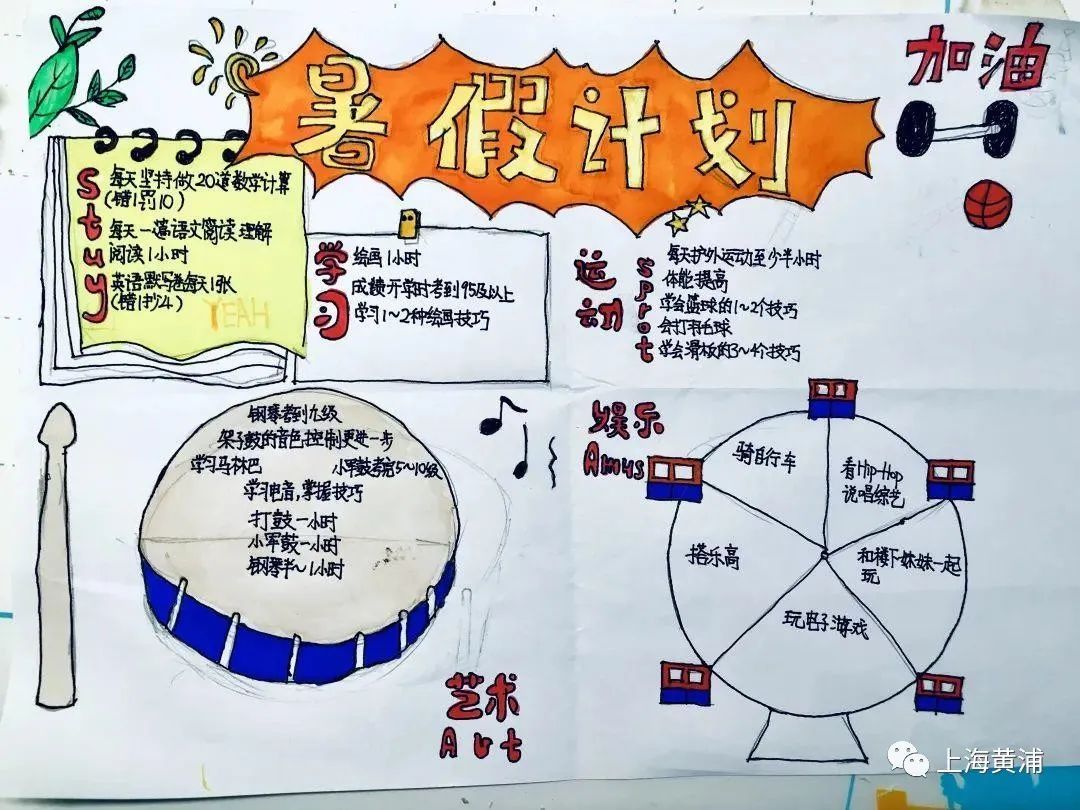 暑假计划
加油
Stuy
每天坚持做20道数学计算
(错1罚10)
每天一篇语文阅读理解
阅读1小时
英语默写卷每天1张
YEAH
学习
绘画1小时
成绩开学时考到95及以上
学习1~2种绘画技巧
运动
Sprot
每天户外运动至少半小时
体能提高
学会篮球的1~2个技巧
会打羽毛球
学会滑板的3~4个技巧
钢琴考到九级
架子鼓的音色,控制更进一步
学习马林巴
小军鼓考完5~10级
学习电音,掌握技巧
打鼓一小时
小军鼓一小时
钢琴半~1小时
艺术
Aut
娱乐
Amus
骑自行车
看Hip-Hop
说唱综艺
搭乐高
和楼下妹妹一起
玩
玩电子游戏
上海黄浦